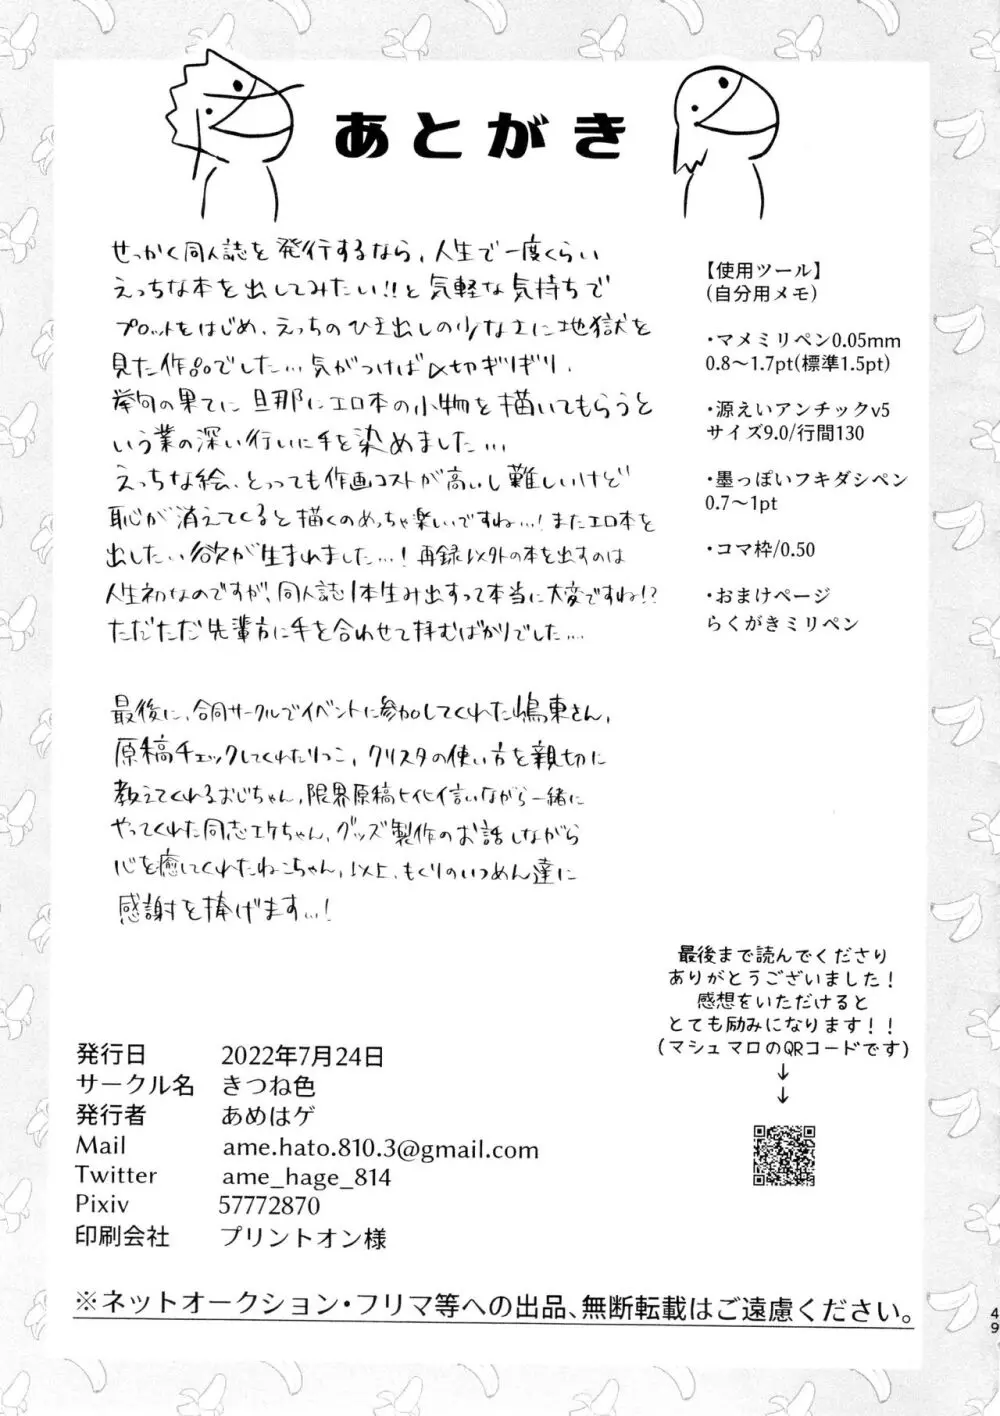 あとがき
せっかく同人誌を発行するなら、人生で一度くらい
えっちな本を出してみたい!!と気軽な気持ちで
プロットをはじめ、えっちのひき出しの少なさに地獄を
見た作品でした…気がつけば〆切ギリギリ、
挙句の果てに旦那にエロ本の小物を描いてもらうと
いう業の深い行いに手を染めました…
えっちな絵、とっっても作画コストが高いし難しいけど
恥が消えてくると描くのめっちゃ楽しいですね…!またエロ本を
出したい欲が生まれました…!再録以外の本を出すのは
人生初なのですが、同人誌1本生み出すって本当に大変ですね!?
ただただ先輩方に手を合わせて拝むばかりでした…
最後に、合同サークルでイベントに参加してくれた嶋東さん、
原稿チェックしてくれたりっこ、クリスタの使い方を親切に
教えてくれるおじちゃん、限界原稿ヒイヒイ言いながら一緒に
やってくれた同志エケちゃん、グッズ製作のお話しながら
心を癒してくれたねこちゃん、以上、もぐりのいつめん達に
感謝を捧げます…!
【使用ツール】
(自分用メモ)
・マメミリペン0.05mm
0.8〜1.7pt(標準1.5pt)
・源えいアンチックv5
サイズ9.0/行間130
・墨っぽいフキダシペン
0.7〜1pt
・コマ枠/0.50
・おまけページ
らくがきミリペン
最後まで読んでくださり
ありがとうございました!
感想をいただけると
とても励みになります!!
(マシュマロのQRコードです)
↓
↓
発行日 2022年7月24日
サークル名 きつね色
発行者 あめはゲ
Mail ame.hato.810.3@gmail.com
Twitter ame_hage_814
Pixiv 57772870
印刷会社 プリントオン様
※ネットオークション・フリマ等への出品、無断転載はご遠慮ください。
49